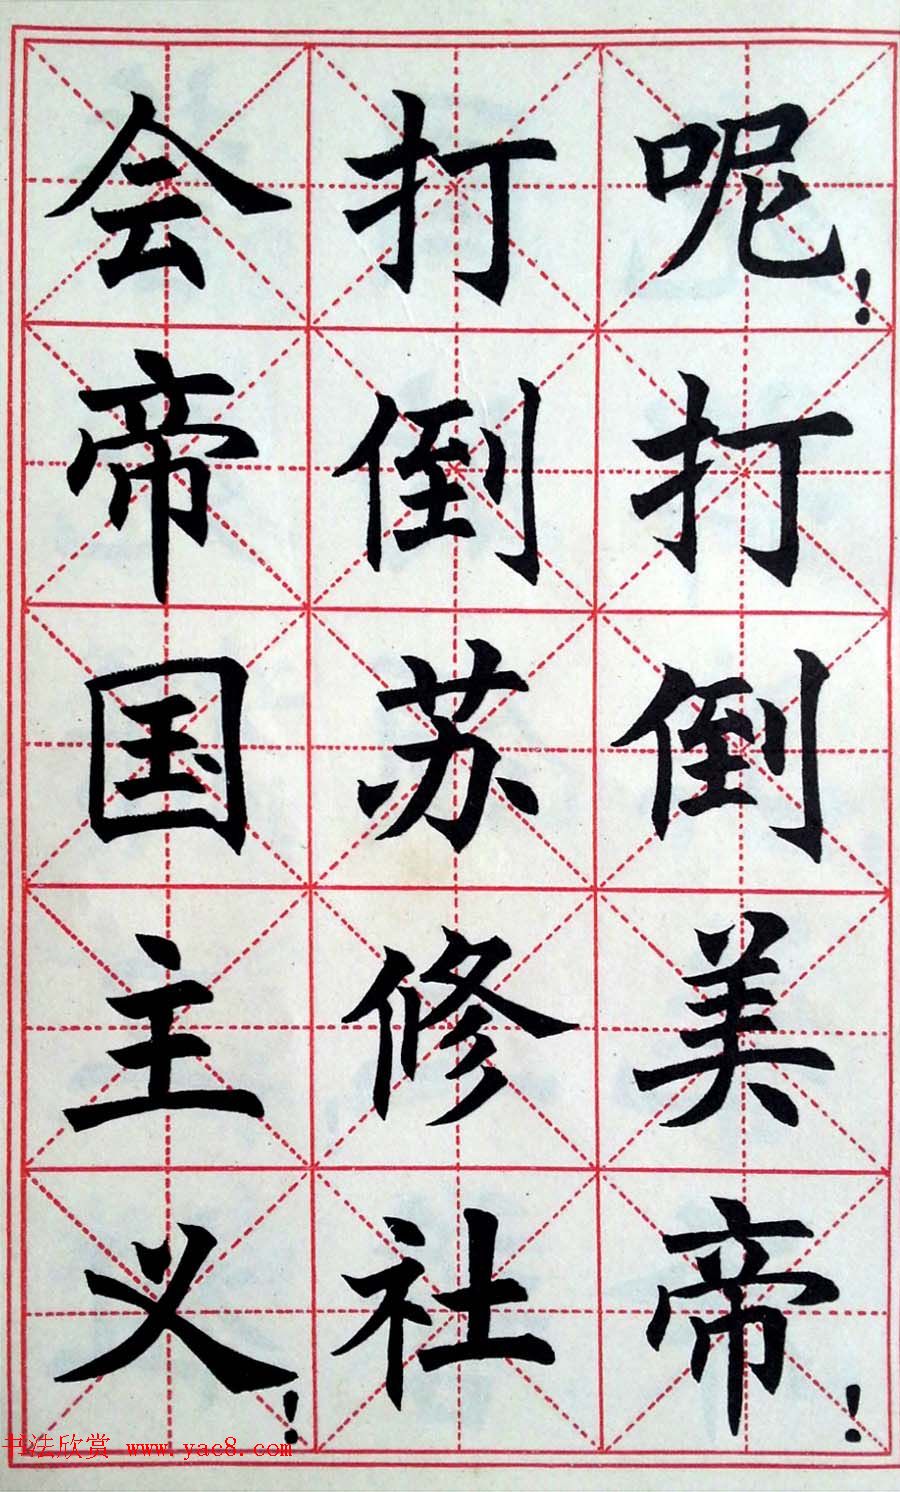 呢！打倒美帝！
打倒苏修社
会帝国主义！
书法欣赏 www.yac8.com